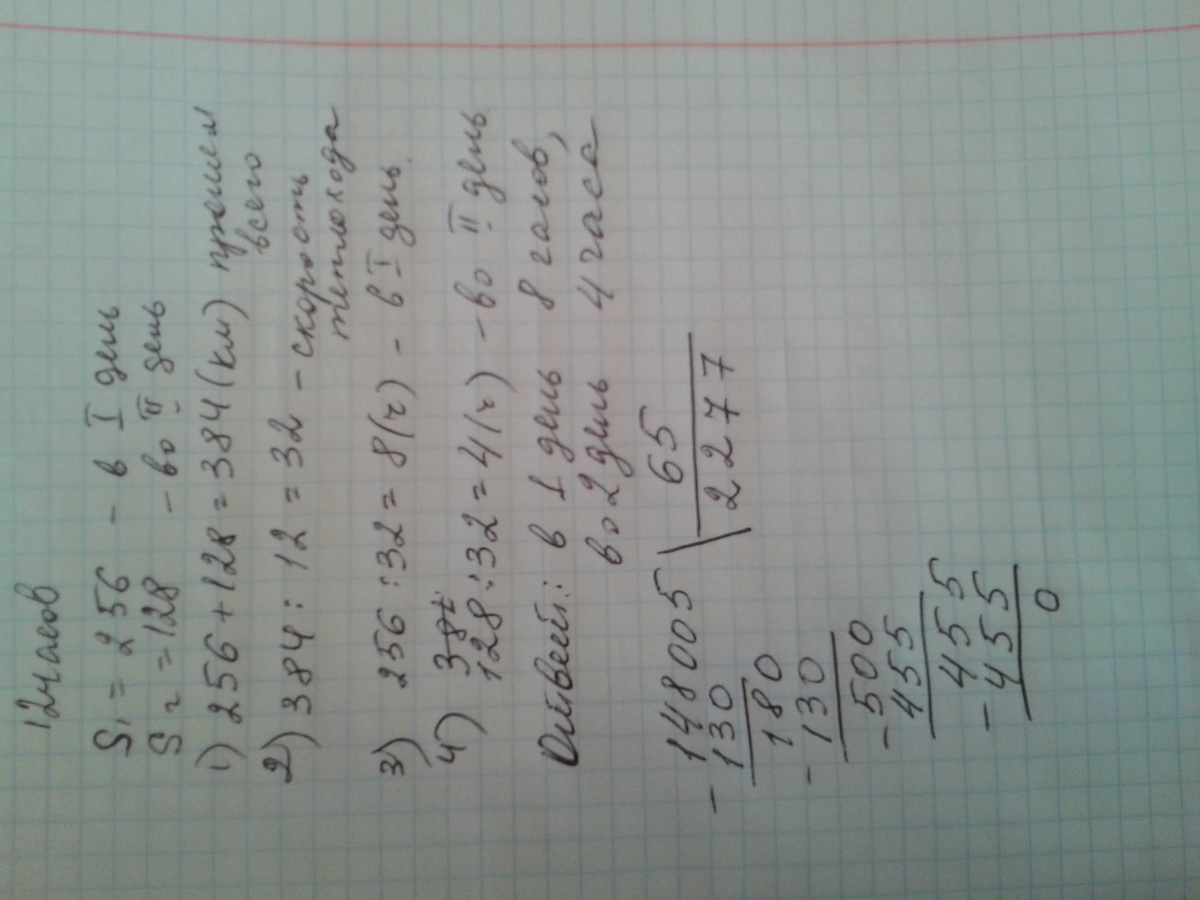 12 часов
S₁ = 256 - в I день
S₂ = 128 - во II день
1) 256 + 128 = 384 (км)
всего
2) 384 : 12 = 32 - скорость
теплохода
3) 256 : 32 = 8 (ч) - в I день.
4) 128 : 32 = 4 (ч) - во II день
Ответ: в 1 день 8 часов,
во 2 день 4 часа
148005 65
- 130 2277
180
- 130
- 500
455
- 455
455
0